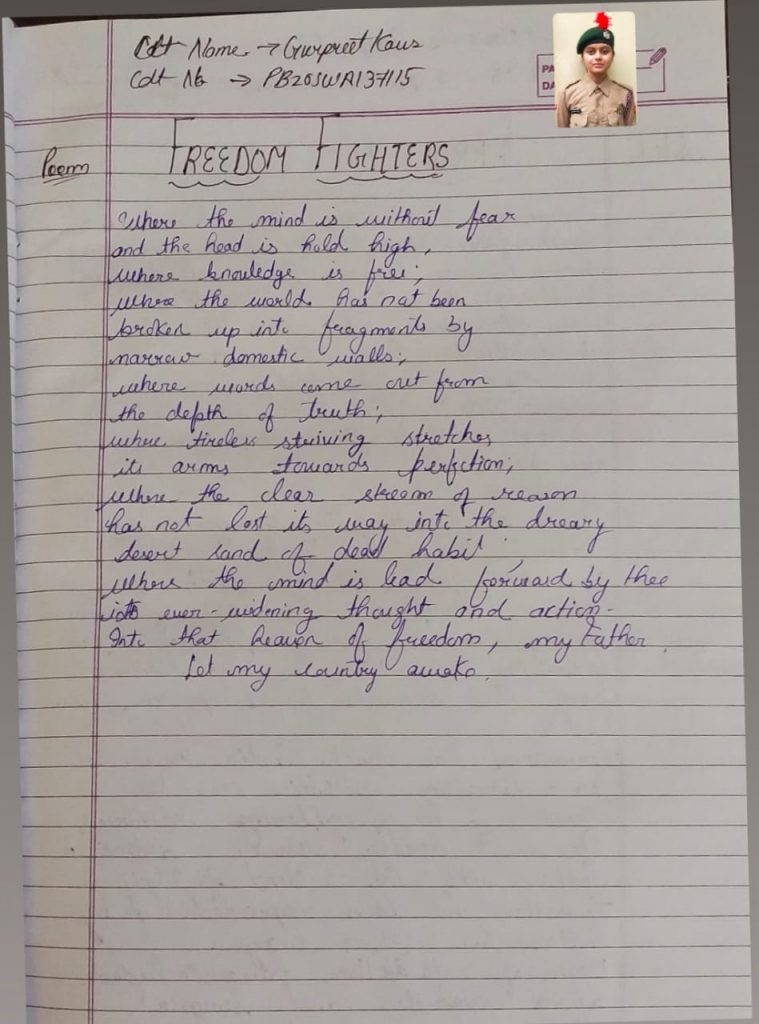 Cdt Name → Gurpreet Kaur
Cdt No → PB20SWA137115
PA
DA
Poem
FREEDOM FIGHTERS
Where the mind is without fear
and the head is hold high,
where knowledge is free;
where the world has not been
broken up into fragments by
narrow domestic walls;
where words come out from
the depth of truth;
where tireless striving stretches
its arms towards perfction;
where the clear stream of reason
has not lost its way into the dreary
desert sand of dead habit;
where the mind is lead forward by thee
into ever-widening thought and action-
Into that heaven of freedom, my Father
Let my country awake.